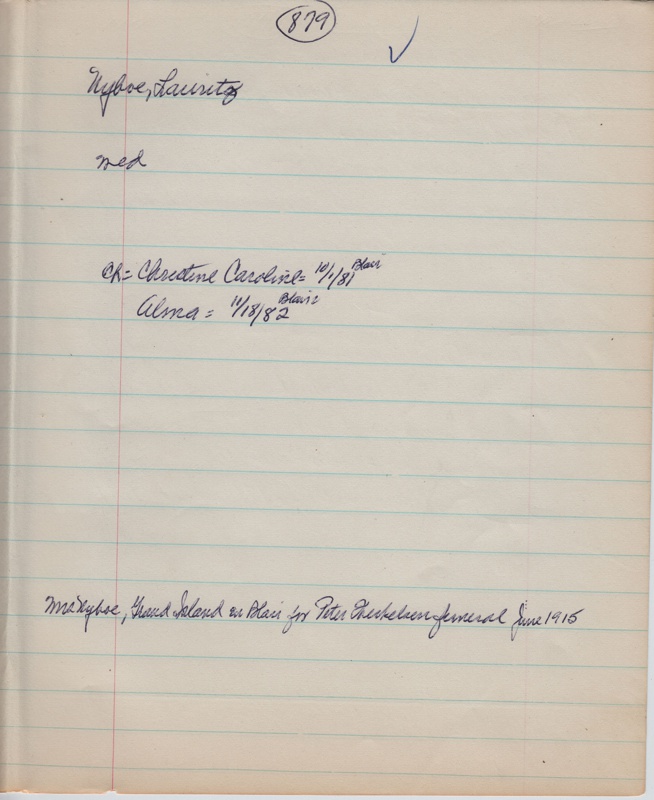 879
Nyboe, Lauritz
med
Ch = Christine Caroline = 10/1/81 Blair
Alma = 11/18/82 Blair
Mrs Nyboe, Grand Island in Blair for Peter Therkelsen funeral June 1915